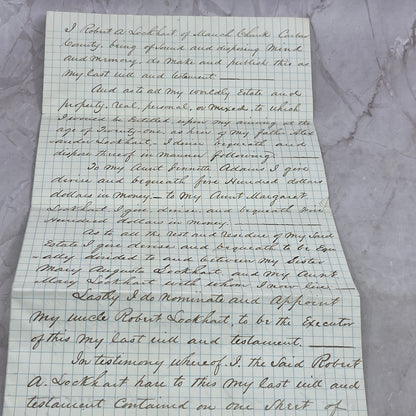 I Robert A Lockhart of Mauch Chunk Carbon
County being of Sound and disposing Mind
and Memory, do Make and publish this as
My last will and testament
And as to all My worldly Estate and
property. Real, personal, or Mixed, to which
I would be Entitled upon my arriving at the
age of Twenty-one, as heir of My father Alex
-ander Lockhart, I devise bequeath and
dispose thereof in Manner following
To My Aunt Jennette Adams I give
devise and bequeath five Hundred dollars
dollars in money. - to My Aunt Margaret
Lockhart I give devise and bequeath Five
Hundred dollars in money.
As to all the Rest and Residue of My Said
Estate I give devise and bequeath to be Equ
-ally divided to and between My Sister
Mary Augusta Lockhart, and My Aunt
Mary Lockhart with whom I now live
Lastly I do Nominate and Appoint
My uncle Robert Lockhart, to be the Executor
of this My last will and testament.
In testimony whereof. I, the Said Robert
A. Lockhart have to this My last will and
testament Contained on one Sheet of